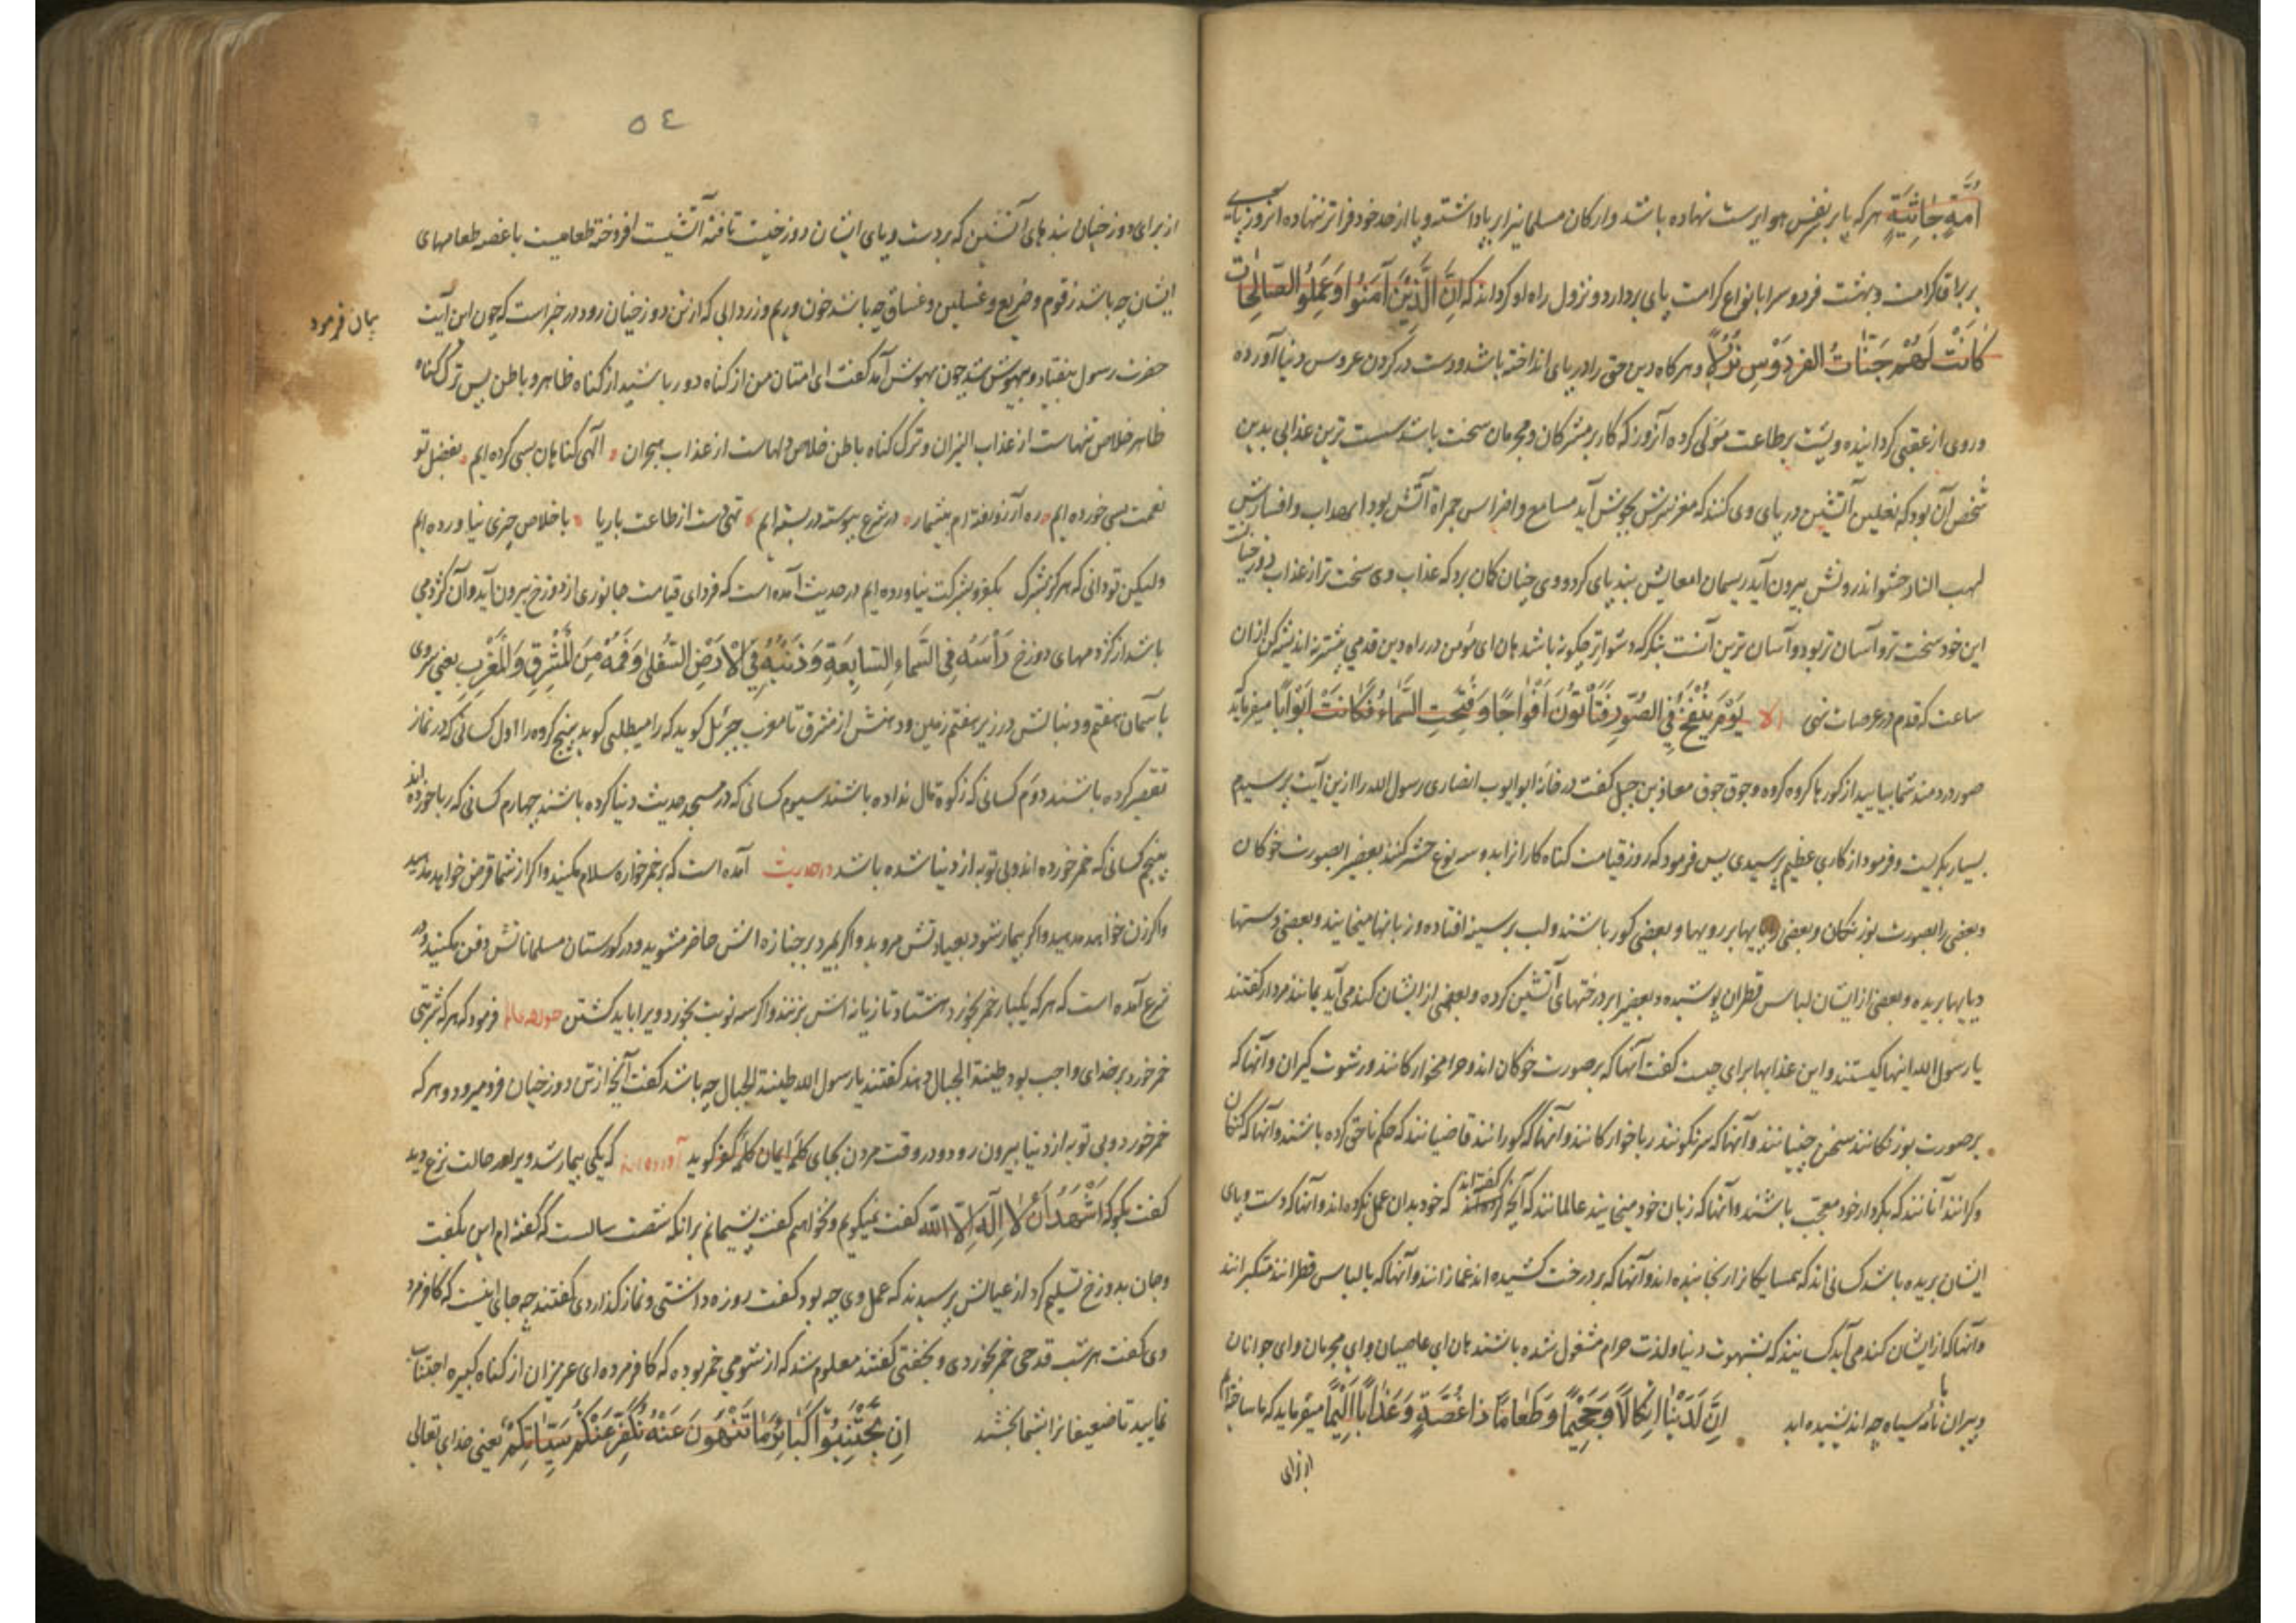 اُمَّةٍ جَاثِيَةٍ هر که پا بر نفس هوا پرست نهاده باشد و ارکان مسلمانی را بر پا داشته و پا از حد خود فراتر ننهاده امروز بپای سعی
بر براق کرامت و بهشت فردوس را با انواع کرامت پای بردارد و نزول راه او کرداند که اِنَّ الَّذِيْنَ آمَنُوْا وَعَمِلُوا الصَّالِحَاتِ
كَانَتْ لَهُمْ جَنَّاتُ الفِرْدَوْسِ نُزُلًا و هر کاه دین حق را در پای انداخته باشد و دست در کردن عروس دنیا آورده
و روی از عقبی کردانیده و پشت بر طاعت مولی کرده آنروز که کار بر مشرکان و مجرمان سخت باشد سست ترین عذابی بدین
شخص آن بود که نعلین آتشین در پای وی کنند که مغز سرش بجوش آید مسامع و اضراس جمراة آتش بود
لهب النار حشو اندرونش بیرون آید ریسمان امعایش بند پای کردد و وی چنان کان برد که عذاب وی سخت تر از عذاب دوزخیانست
این خود سخت تر و آسان تر بود و آسان ترین آنست بنکر که دشوارتر چکونه باشد هان ای مؤمن در راه دین قدمی پیشتر نه اندیشه کن ازان
ساعت که قدم در عرصات نهی يَوْمَ يُنْفَخُ فِي الصُّوْرِ فَتَأْتُوْنَ اَفْوَاجًا وَ فُتِحَتِ السَّمَاءُ فَكَانَتْ اَبْوَابًا میفرماید
صور دردمند شما بیایید از کورها کروه کروه و جوق جوق معاذ بن جبل کفت در خانه ابو ایوب انصاری رسول الله را ازین آیت پرسیدم
بسیار بکریست و فرمود از کاری عظیم پرسیدی پس فرمود که روز قیامت کناه کارانرا بده نوع حشر کنند بعضی را بصورت خوکان
و بعضی را بصورت بوزنکان و بعضی پایها بر رویها و بعضی کور باشند و لب بر سینه افتاده و زبانها میخایند و بعضی دستها
و پایها بریده و بعضی از ایشان لباس قطران پوشیده و بعضی را بر درختهای آتشین کرده و بعضی از ایشان کند می آید مانند مردار کفتند
یا رسول الله اینها کیستند و این عذابها برای چیست کفت آنها که بر صورت خوکان اند و حرامخوارکانند و رشوت کیران و آنها که
بر صورت بوزنکانند سخن چینانند و آنها که سرنکونند رباخوارکانند و آنها که کورانند قاضیانند که حکم ناحق کرده باشند و آنها که کنکان
و کرانند آنانند که بکردار خود معجب باشند و آنها که زبان خود میخایند عالمانند که آنچه کفته اند که خود بدان عمل نکرده اند و آنها که دست و پای
ایشان بریده باشد کسانی اند که همسایکانرا رنجانیده اند و آنها که بر درخت کشیده اند غمازانند و آنها که با لباس قطرانند متکبرانند
و آنها که از ایشان کند می آید کسانیند که بشهوت دنیا و لذت حرام مشغول شده باشند هان ای عاصیان و ای مجرمان و ای جوانان
و پیران با نامه سیاه چه اندیشیده اید اِنَّ لَدَيْنَا اَنْكَالًا وَّجَحِيْمًا وَ طَعَامًا ذَا غُصَّةٍ وَعَذَابًا اَلِيْمًا میفرماید که ما ساخته ایم
از برای
٥٤
از برای دوزخیان بندهای آتشین که بر دست و پای ایشان دوزخیست تافته آتشیست افروخته طعامیست با غصه طعامهای
ایشان چه باشد زقوم و ضریع و غسلین و غساق چه باشد خون و ریم و زردابی که از تن دوزخیان رود در خبر است که چون این آیت
بیان فرمود
حضرت رسول بیفتاد و بیهوش شد چون بهوش آمد کفت ای امتان من از کناه دور باشید از کناه ظاهر و باطن پس ترک کناه
ظاهر خلاص تنهاست از عذاب النیران و ترک کناه باطن خلاص دلهاست از عذاب هجران الهی کناهان بسی کرده ایم بفضل تو
نعمت بسی خورده ایم ره آرزو رفته ام بیشمار در شرع پیوسته در بسته ایم تهی دست از طاعت باریا باخلاص چیزی نیاورده ایم
ولیکن تو دانی که هرکز بشرک بکفر و بشرکت نیاورده ایم در حدیث آمده است که فردای قیامت جانوری از دوزخ بیرون آید و آن کژدمی
باشد از کژدمهای دوزخ رَأْسُهُ فِي السَّمَاءِ السَّابِعَةِ وَ ذَنَبُهُ فِي الْاَرْضِ السُّفْلَى وَ فَمُهُ مِنَ الْمَشْرِقِ وَ الْمَغْرِبِ یعنی سر وی
بآسمان هفتم و دنبالش در زیر هفتم زمین و دهنش از مشرق تا مغرب جبرئیل کوید که را میطلبی کوید پنج کروه را اول کسانی که در نماز
تقصیر کرده باشند دوم کسانی که زکوة مال نداده باشند سیوم کسانی که در مسجد حدیث دنیا کرده باشند چهارم کسانی که ربا خورده اند
پنجم کسانی که خمر خورده اند و بی توبه از دنیا شده باشد در حدیث آمده است که بر خمر خواره سلام مکنید و اکر از شما قرض خواهد مدهید
و اکر زن خواهد مدهید و اکر بیمار شود بعیادتش مروید و اکر بمیرد بر جنازه اش حاضر مشوید و در کورستان مسلمانانش دفن مکنید در
شرع آمده است که هر که یکبار خمر بخورد هشتاد تازیانه اش بزنند و اکر سه نوبت بخورد ویرا باید کشتن فرمود که هر که شربتی
خمر خورد بر خدای واجب بود طینة الجبال دهند کفتند یا رسول الله طینة الجبال چه باشد کفت آنچه از تن دوزخیان فرو میرود و هر که
خمر خورد و بی توبه از دنیا بیرون رود و در وقت مردن بجای کلمه ایمان کلمه کفر کوید آورده اند که یکی بیمار شد ویرا در حالت نزع دید
کفت بکو که اَشْهَدُ اَنْ لَا اِلٰهَ اِلَّا اللّٰه کفت نمیکویم و نخواهم کفت پشیمانم برانکه شصت سالست که کفته ام این بکفت
و جان بدوزخ تسلیم کرد از عیالش پرسیدند که عمل وی چه بود کفت روزه داشتی و نماز کذاردی کفتند چه جای اینست که کافر مرد
وی کفت هر شب قدحی خمر بخوردی و بخفتی کفتند معلوم شد که از شومی خمر بوده که کافر مرده ای عزیزان از کناه کبیره اجتناب
نمایید تا ضعیفانرا بشما بخشد اِنْ تَجْتَنِبُوْا كَبَائِرَ مَا تُنْهَوْنَ عَنْهُ نُكَفِّرْ عَنْكُمْ سَيِّاٰتِكُمْ یعنی خدای تعالی